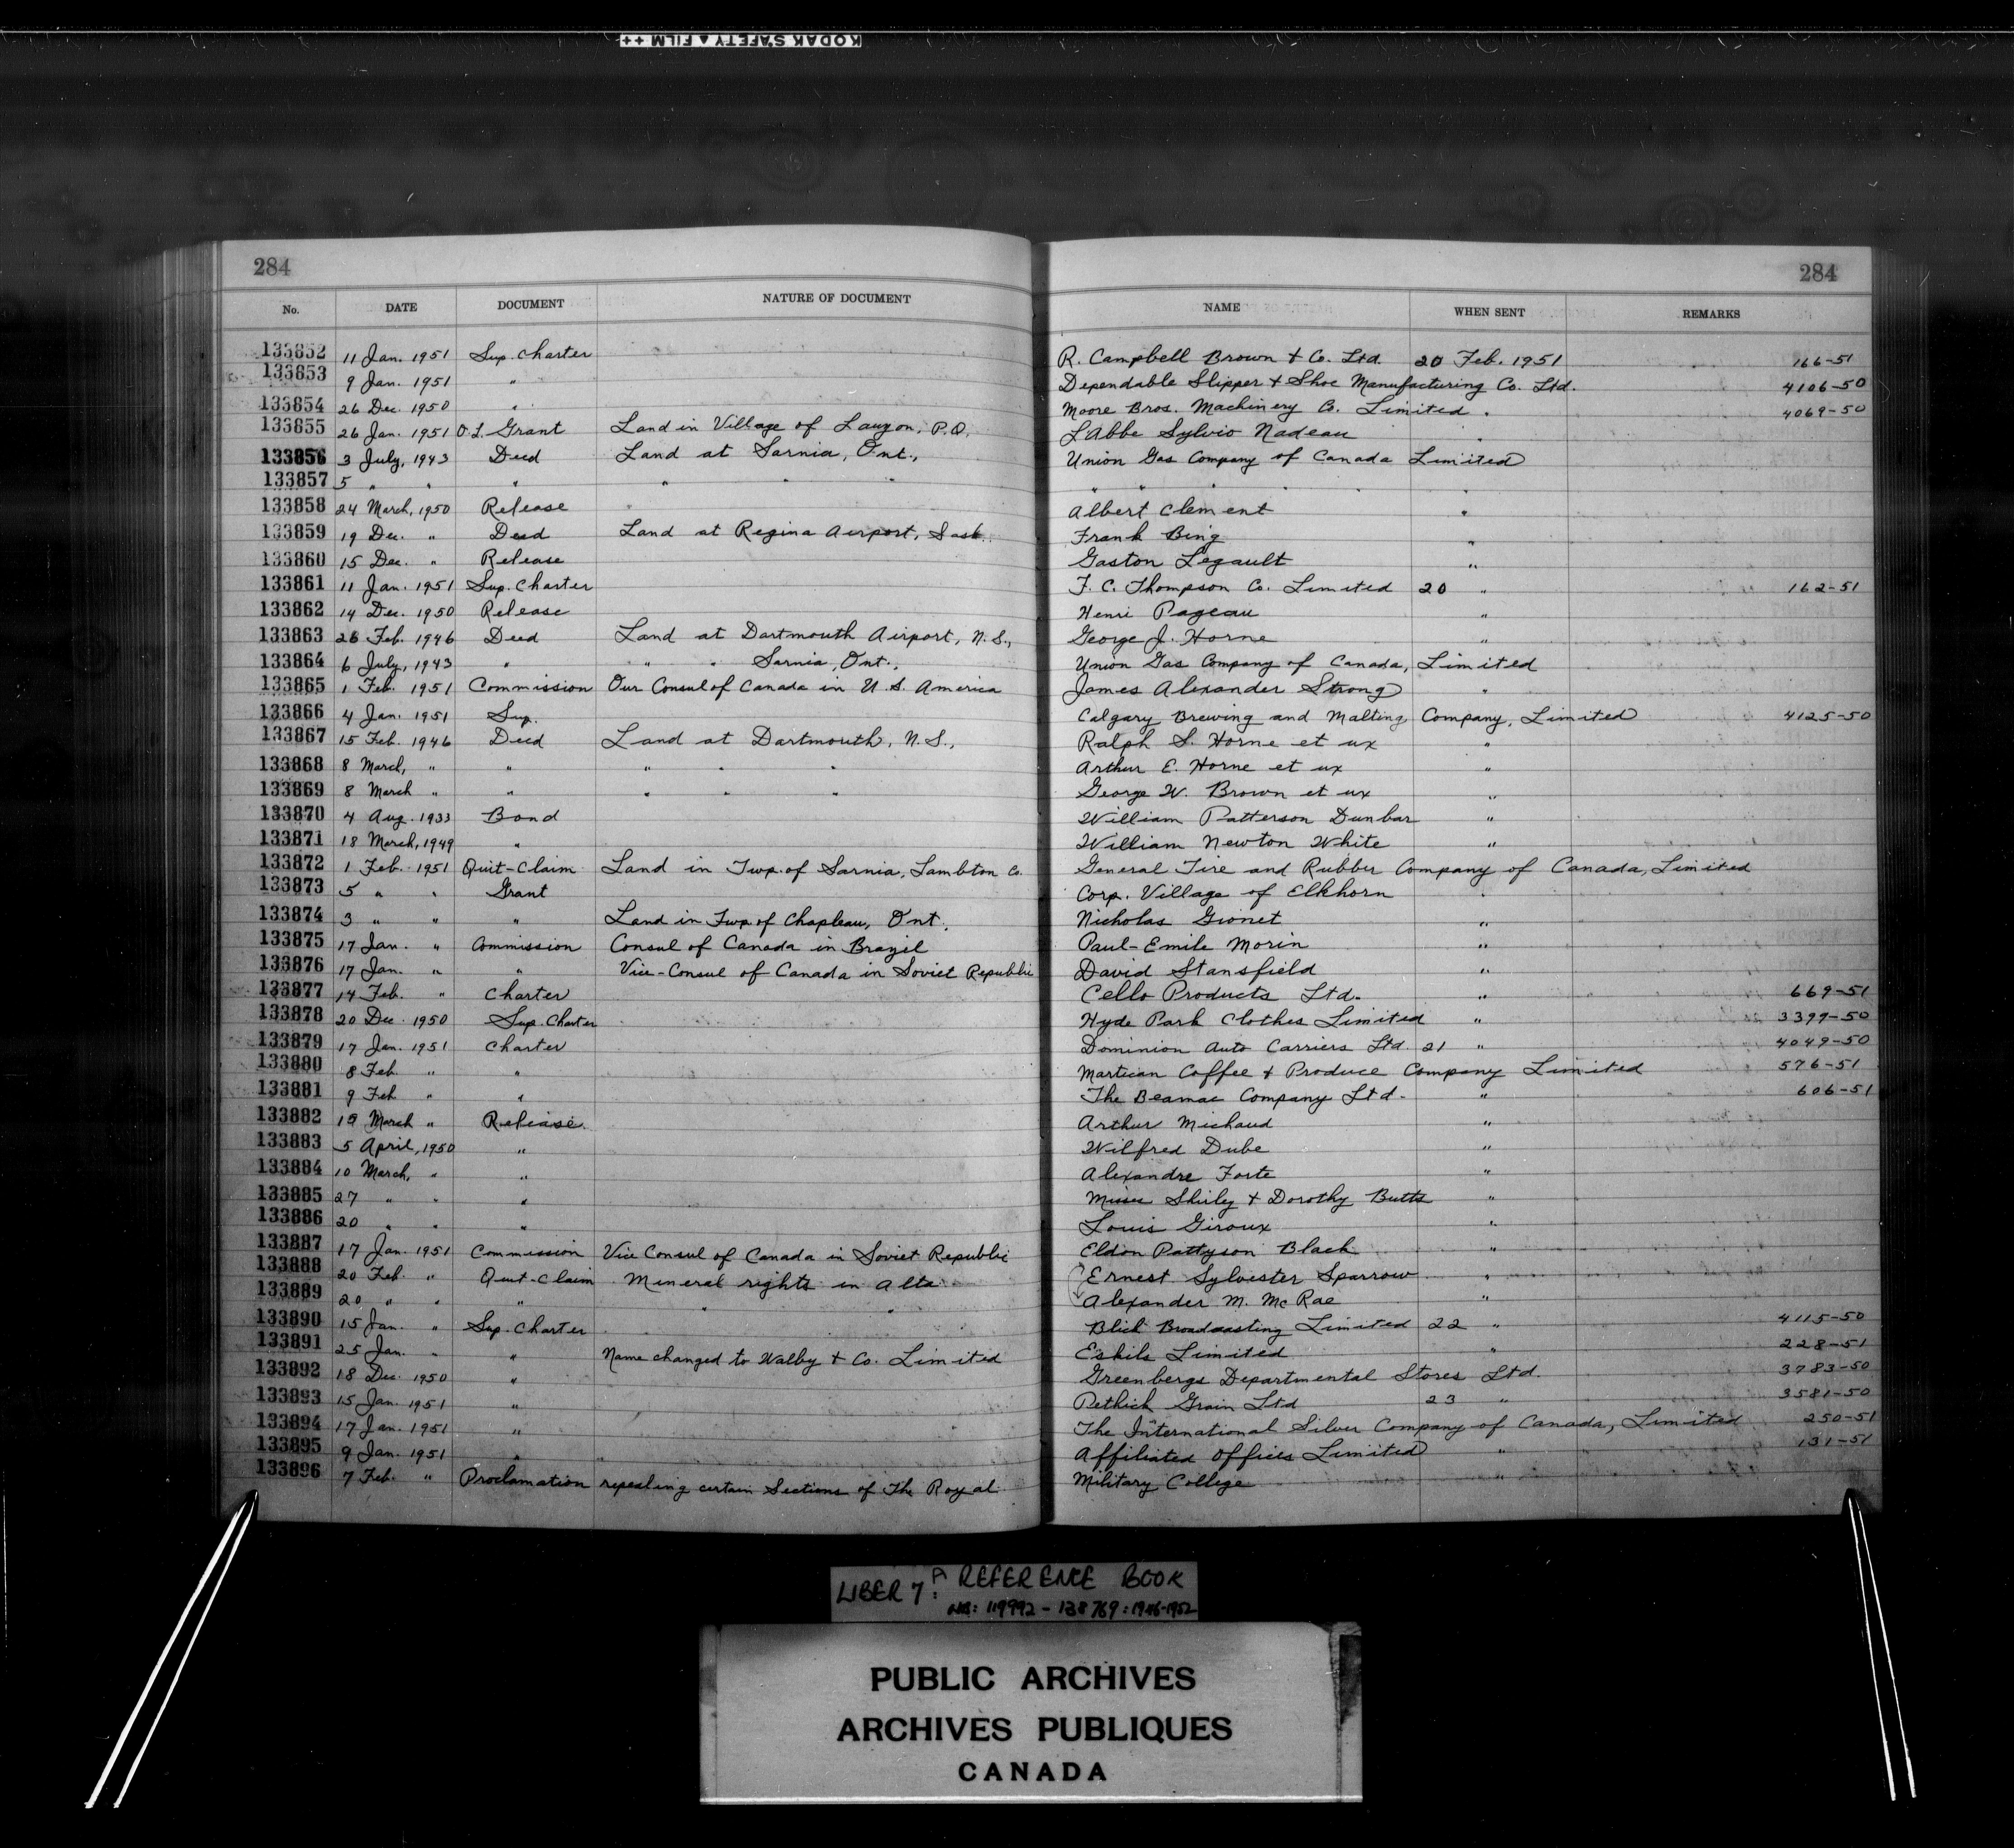 KODAK SAFETY ▲ FILM ++
284 284
No. DATE DOCUMENT NATURE OF DOCUMENT NAME WHEN SENT REMARKS
133852 11 Jan. 1951 Sup. Charter R. Campbell Brown & Co. Ltd. 20 Feb. 1951 166-51
133853 9 Jan. 1951 " Dependable Slipper & Shoe Manufacturing Co. Ltd. 4106-50
133854 26 Dec. 1950 " Moore Bros. Machinery Co. Limited " 4069-50
133855 26 Jan. 1951 O.L. Grant Land in Village of Lauzon, P.Q. L'Abbe Sylvio Nadeau "
133856 3 July, 1943 Deed Land at Sarnia, Ont., Union Gas Company of Canada Limited
133857 5 " " " " " " " " " " " "
133858 24 March, 1950 Release " Albert Clement "
133859 19 Dec. " Deed Land at Regina Airport, Sask. Frank Bing "
133860 15 Dec. " Release Gaston Legault "
133861 11 Jan. 1951 Sup. Charter F. C. Thompson Co. Limited 20 " 162-51
133862 14 Dec. 1950 Release Henri Pageau "
133863 26 Feb. 1946 Deed Land at Dartmouth Airport, N.S., George J. Horne "
133864 6 July, 1943 " " " Sarnia, Ont., Union Gas Company of Canada, Limited
133865 1 Feb. 1951 Commission Our Consul of Canada in U.S. America James Alexander Strong "
133866 4 Jan. 1951 Sup. Calgary Brewing and Malting Company, Limited 4125-50
133867 15 Feb. 1946 Deed Land at Dartmouth, N.S., Ralph S. Horne et ux "
133868 8 March, " " " " " Arthur E. Horne et ux "
133869 8 March " " " " " George W. Brown et ux "
133870 4 Aug. 1933 Bond William Patterson Dunbar "
133871 18 March, 1949 " William Newton White "
133872 1 Feb. 1951 Quit-Claim Land in Twp. of Sarnia, Lambton Co. General Tire and Rubber Company of Canada, Limited
133873 5 " " Grant Corp. Village of Elkhorn "
133874 3 " " " Land in Twp. of Chapleau, Ont. Nicholas Gionet "
133875 17 Jan. " Commission Consul of Canada in Brazil Paul-Emile Morin "
133876 17 Jan. " " Vice-Consul of Canada in Soviet Republic David Stansfield "
133877 14 Feb. " Charter Cello Products Ltd. " 669-51
133878 20 Dec. 1950 Sup. Charter Hyde Park Clothes Limited " 3399-50
133879 17 Jan. 1951 Charter Dominion Auto Carriers Ltd. 21 " 4049-50
133880 8 Feb. " " Martican Coffee & Produce Company Limited 576-51
133881 9 Feb " " The Beamac Company Ltd. " 606-51
133882 15 March " Release Arthur Michaud "
133883 5 April, 1950 " Wilfred Dube "
133884 10 March, " " Alexandre Forte "
133885 27 " " " Misses Shirley & Dorothy Butts "
133886 20 " " " Louis Giroux "
133887 17 Jan. 1951 Commission Vice Consul of Canada in Soviet Republic Eldon Pattyson Black "
133888 20 Feb. " Quit-Claim Mineral rights in Alta. Ernest Sylvester Sparrow "
133889 20 " " " " " Alexander M. McRae "
133890 15 Jan. " Sup. Charter Blick Broadcasting Limited 22 " 4115-50
133891 25 Jan. " " Name changed to Walby & Co. Limited Eskils Limited " 228-51
133892 18 Dec. 1950 " Greenbergs Departmental Stores Ltd. 3783-50
133893 15 Jan. 1951 " Pethick Grain Ltd 23 " 3581-50
133894 17 Jan. 1951 " The International Silver Company of Canada, Limited 250-51
133895 9 Jan. 1951 " Affiliated Offices Limited " 131-51
133896 7 Feb. " Proclamation repealing certain Sections of The Royal Military College "
LIBER 7: A REFERENCE BOOK
NO: 119992 - 138769: 1946-1952
PUBLIC ARCHIVES
ARCHIVES PUBLIQUES
CANADA